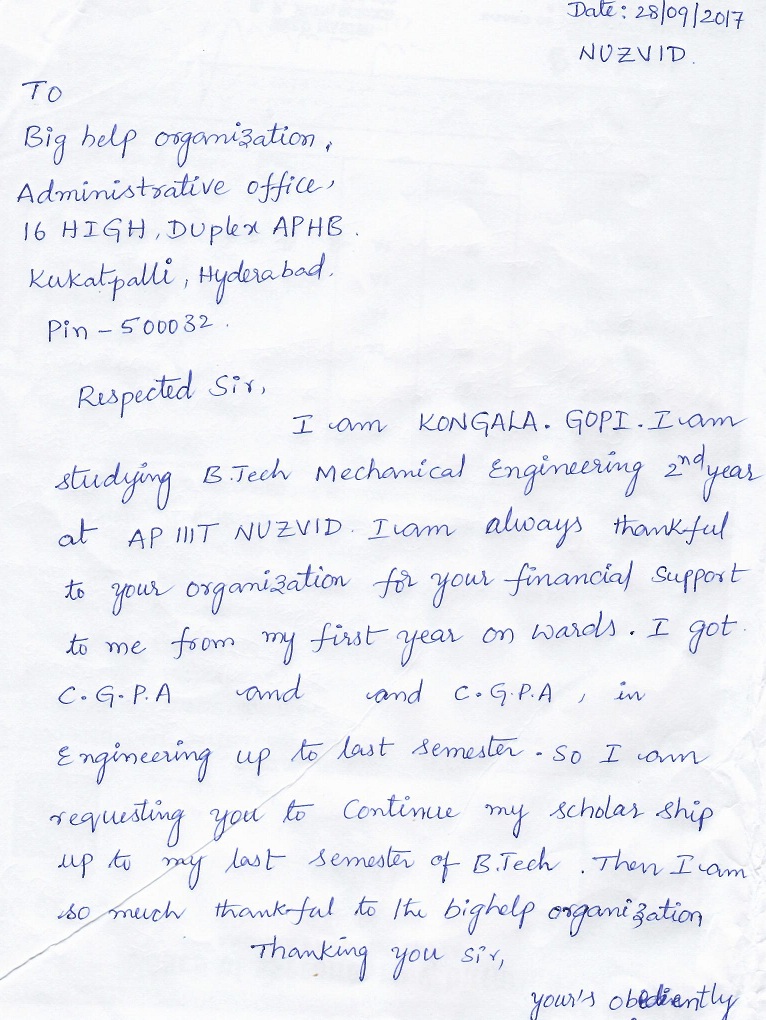 Date: 28/09/2017
NUZVID.
TO
Big help organization,
Administrative office,
16 HIGH, Duplex APHB.
Kukatpalli, Hyderabad.
Pin - 500032.
Respected Sir,
I am KONGALA. GOPI. I am
studying B.Tech Mechanical Engineering 2nd year
at AP IIIT NUZVID. I am always thankful
to your organization for your financial support
to me from my first year on wards. I got
C.G.P.A and and C.G.P.A, in
Engineering up to last semester. So I am
requesting you to Continue my scholar ship
up to my last semester of B.Tech. Then I am
so much thankful to the bighelp organization
Thanking you sir,
your's obediently